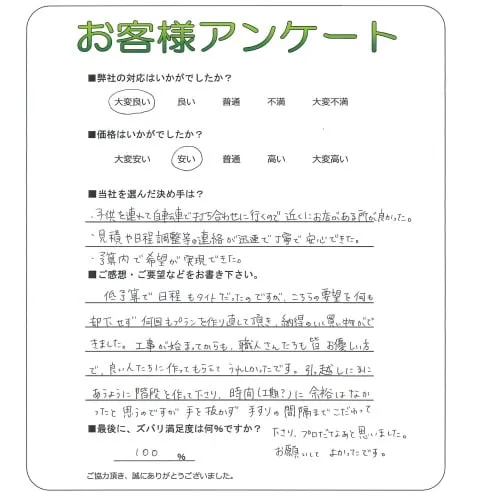 お客様アンケート
■弊社の対応はいかがでしたか？
大変良い 良い 普通 不満 大変不満
■価格はいかがでしたか？
大変安い 安い 普通 高い 大変高い
■当社を選んだ決め手は？
・子供を連れて自転車で打ち合わせに行くので近くにお店がある所が良かった。
・見積や日程調整等の連絡が迅速で丁寧で安心できた。
・予算内で希望が実現できた。
■ご感想・ご要望などをお書き下さい。
低予算で日程もタイトだったのですが、こちらの要望を何も
却下せず何回もプランを作り直して頂き、納得のいく買い物がで
きました。工事が始まってからも、職人さんたちも皆お優しい方
で、良い人たちに作ってもらえてうれしかったです。引越しに間に
あうように階段を作って下さり、時間(工期?)に余裕はなか
ったと思うのですが手を抜かず手すりの間隔までこだわって
下さり、プロだなぁと思いました。
お願いして よかったです。
■最後に、ズバリ満足度は何％ですか？
100 ％
ご協力頂き、誠にありがとうございました。